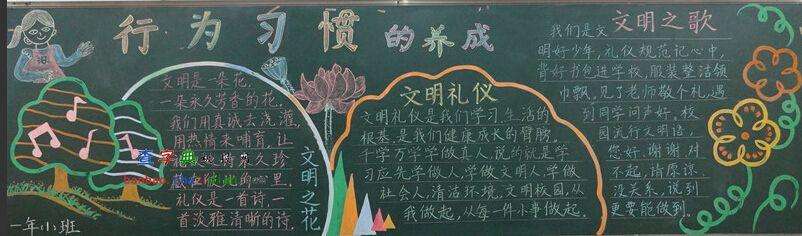 行为习惯的养成
文明是一朵花,
一朵永久芳香的花,
我们用真诚去浇灌,
用热情来哺育,让
永久珍
里.
礼仪是一首诗,一
首淡雅清晰的诗.
文明之花
一年小班
文明礼仪
文明礼仪是我们学习,生活的
根基,是我们健康成长的臂膀,
千学万学学做真人,说的就是学
习应先学做人,学做文明人,学做
社会人,清洁环境,文明校园,从
我做起,从每一件小事做起.
文明之歌
我们是文
明好少年,礼仪规范记心中,
背好书包进学校,服装整洁领
巾飘,见了老师敬个礼,遇
到同学问声好,校
园流行文明语,
您好,谢谢,对
不起,请原谅
没关系,说到
更要能做到.